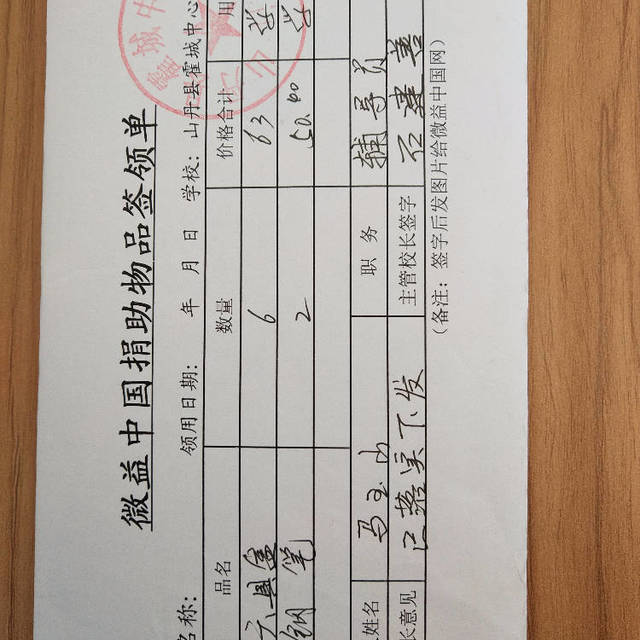 微益中国捐助物品签领单
领用日期： 年 月 日 学校：山丹县霍城中心
名称：
品名 数量 价格合计 用
文具盒 6 63 学
钢笔 2 50.00 学
姓名 马玉山 职务 辅导员
长意见 已落实下发 主管校长签字 石建善
（备注：签字后发图片给微益中国网）